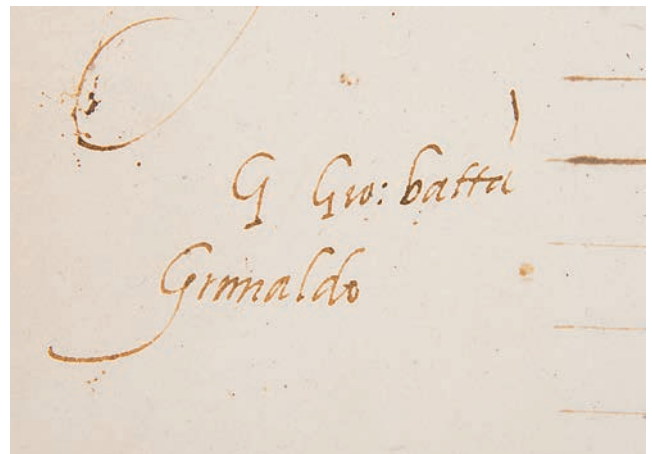 G Gio: batta
Grimaldo